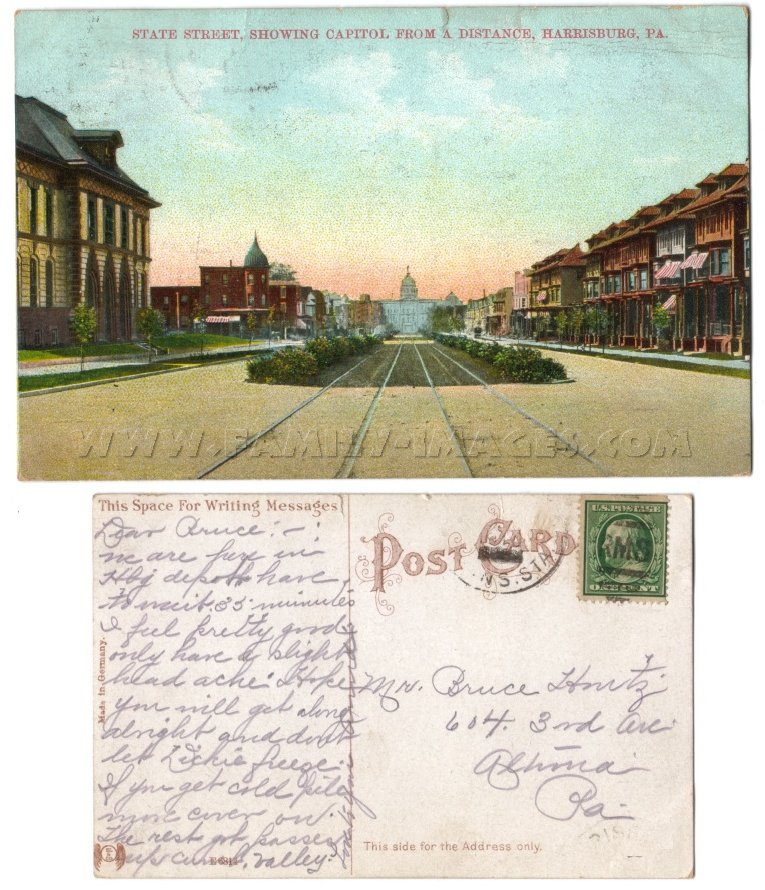 STATE STREET, SHOWING CAPITOL FROM A DISTANCE, HARRISBURG, PA.
WWW.FAMILY-IMAGES.COM
This Space For Writing Messages
Dear Bruce:-
we are here in
Hbg depot & have
to wait 35 minutes
I feel pretty good
only have a slight
head ache. Hope
you will get along
alright and dont
let Dickie freeze.
If you get cold pile
more cover on.
The rest got passes
up Cumb. Valley.
Made in Germany.
E6814
POST CARD
U.S. POSTAGE
ONE CENT
RMS
Mr. Bruce
604. 3rd Ave
Altoona
Pa.
This side for the Address only.